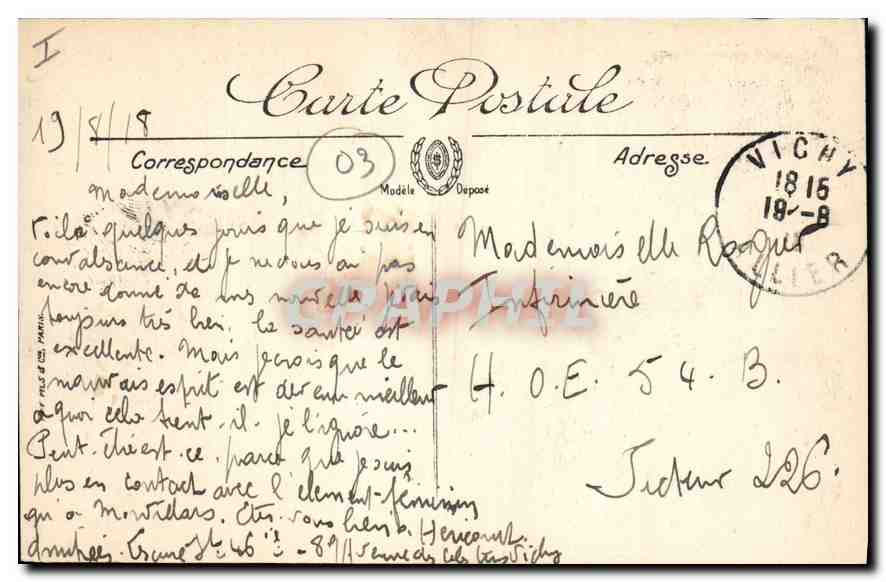 I
Carte Postale
19/8/18
Correspondance
03
Modèle Déposé
Adresse
VICHY
1815
19-8
ALLIER
Mademoiselle,
Voilà quelques jours que je suis en
convalescence, et je ne vous ai pas
encore donné de mes nouvelle, je vais
toujours très bien, la santé est
excellente. Mais je crois que le
mauvais esprit est devenu meilleur
à quoi cela tient-il, je l'ignore...
Peut-être est-ce parce que je suis
plus en contact avec l'élement-féminin
qu'à Morvillars. Êtes-vous bien à Hericourt.
Mademoiselle Roguer
Infirmière
H.O.E. 54.B.
Secteur 226.
CPAPHIL
PARIS